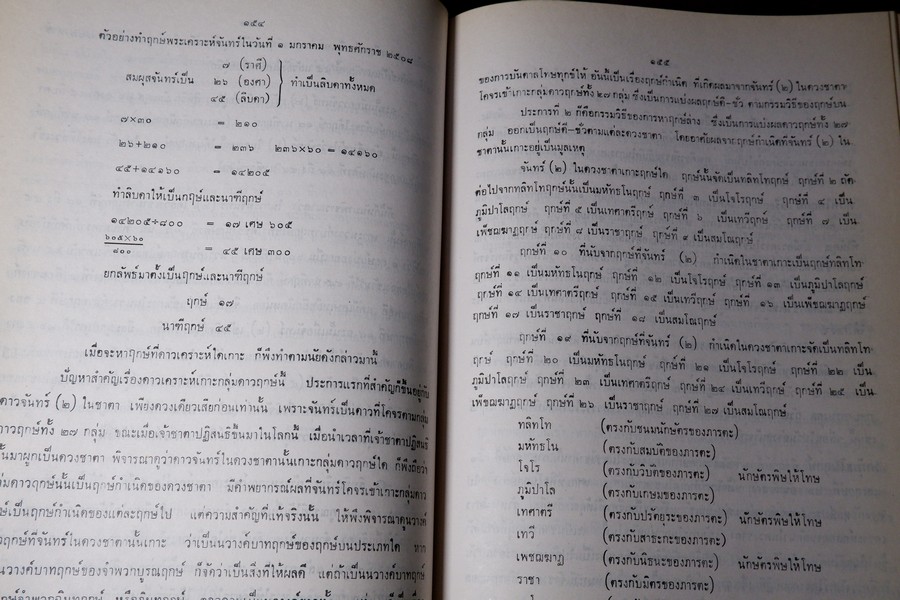 ๑๕๔
ตัวอย่างทำฤกษ์พระเคราะห์จันทร์ในวันที่ ๑ มกราคม พุทธศักราช ๒๕๐๘
๗ (ราศี)
สมผุสจันทร์เป็น ๒๖ (องศา) ทำเป็นลิบดาทั้งหมด
๔๕ (ลิบดา)
๗×๓๐ = ๒๑๐
๒๖+๒๑๐ = ๒๓๖ ๒๓๖×๖๐ = ๑๔๑๖๐
๔๕+๑๔๑๖๐ = ๑๔๒๐๕
ทำลิบดาให้เป็นฤกษ์และนาฑีฤกษ์
๑๔๒๐๕÷๘๐๐ = ๑๗ เศษ ๖๐๕
๖๐๕×๖๐
๘๐๐ = ๔๕ เศษ ๓๐๐
ยกลัพธ์มาตั้งเป็นฤกษ์และนาฑีฤกษ์
ฤกษ์ ๑๗
นาฑีฤกษ์ ๔๕
เมื่อจะหาฤกษ์ที่ดาวเคราะห์ใดเกาะ ก็พึงทำตามนัยดังกล่าวมานี้
ปัญหาสำคัญเรื่องดาวเคราะห์เกาะกลุ่มดาวฤกษ์นี้ ประการแรกที่สำคัญก็ขึ้นอยู่กับ
ดาวจันทร์ (๒) ในชาตา เพียงดวงเดียวเสียก่อนเท่านั้น เพราะจันทร์เป็นดาวที่โคจรตามกลุ่ม
ดาวฤกษ์ทั้ง ๒๗ กลุ่ม ขณะเมื่อเจ้าชาตาปฏิสนธิขึ้นมาในโลกนี้ เมื่อนำเวลาที่เจ้าชาตาปฏิสนธิ
ขึ้นมาผูกเป็นดวงชาตา พิจารณาดูว่าดาวจันทร์ในดวงชาตานั้นเกาะกลุ่มดาวฤกษ์ใด ก็พึงถือว่า
กลุ่มดาวฤกษ์นั้นเป็นฤกษ์กำเนิดของดวงชาตา มีคำพยากรณ์ผลที่จันทร์โคจรเข้าเกาะกลุ่มดาว
เป็นฤกษ์กำเนิดของแต่ละฤกษ์ไป แต่ความสำคัญที่แท้จริงนั้น ให้พึงพิจารณาดูนวางค์
ฤกษ์ที่จันทร์ในดวงชาตานั้นเกาะ ว่าเป็นนวางค์บาทฤกษ์ของฤกษ์บนประเภทใด หาก
นวางค์บาทฤกษ์ของจำพวกบูรณฤกษ์ ก็จัดว่าเป็นสิ่งที่ให้ผลดี แต่ถ้าเป็นนวางค์บาทฤกษ์
๑๕๕
ของการบันดาลโทษทุกข์ให้ อันนี้เป็นเรื่องฤกษ์กำเนิด ที่เกิดผลมาจากจันทร์ (๒) ในดวงชาตา
โคจรเข้าเกาะกลุ่มดาวฤกษ์ทั้ง ๒๗ กลุ่ม ซึ่งเป็นการแบ่งผลฤกษ์ดี–ชั่ว ตามกรรมวิธีของฤกษ์บน
ประการที่ ๒ ก็คือกรรมวิธีของการหาฤกษ์ล่าง ซึ่งเป็นการแบ่งผลดาวฤกษ์ทั้ง ๒๗
กลุ่ม ออกเป็นฤกษ์ดี–ชั่วตามแต่ละดวงชาตา โดยอาศัยผลจากฤกษ์กำเนิดที่จันทร์ (๒) ใน
ชาตานั้นเกาะอยู่เป็นมูลเหตุ
จันทร์ (๒) ในดวงชาตาเกาะฤกษ์ใด ฤกษ์นั้นจัดเป็นทลิทโทฤกษ์ ฤกษ์ที่ ๒ ถัด
ต่อไปจากทลิทโทฤกษ์นั้นเป็นมหัทธโนฤกษ์ ฤกษ์ที่ ๓ เป็นโจโรฤกษ์ ฤกษ์ที่ ๔ เป็น
ภูมิปาโลฤกษ์ ฤกษ์ที่ ๕ เป็นเทศาตรีฤกษ์ ฤกษ์ที่ ๖ เป็นเทวีฤกษ์ ฤกษ์ที่ ๗ เป็น
เพ็ชฌฆาฏฤกษ์ ฤกษ์ที่ ๘ เป็นราชาฤกษ์ ฤกษ์ที่ ๙ เป็นสมโณฤกษ์
ฤกษ์ที่ ๑๐ ที่นับจากฤกษ์ที่จันทร์ (๒) กำเนิดในชาตาเกาะเป็นฤกษ์ทลิทโท-
ฤกษ์ที่ ๑๑ เป็นมหัทธโนฤกษ์ ฤกษ์ที่ ๑๒ เป็นโจโรฤกษ์ ฤกษ์ที่ ๑๓ เป็นภูมิปาโลฤกษ์
ฤกษ์ที่ ๑๔ เป็นเทศาตรีฤกษ์ ฤกษ์ที่ ๑๕ เป็นเทวีฤกษ์ ฤกษ์ที่ ๑๖ เป็นเพ็ชฌฆาฏฤกษ์
ฤกษ์ที่ ๑๗ เป็นราชาฤกษ์ ฤกษ์ที่ ๑๘ เป็นสมโณฤกษ์
ฤกษ์ที่ ๑๙ ที่นับจากฤกษ์ที่จันทร์ (๒) กำเนิดในดวงชาตาเกาะจัดเป็นทลิทโท-
ฤกษ์ ฤกษ์ที่ ๒๐ เป็นมหัทธโนฤกษ์ ฤกษ์ที่ ๒๑ เป็นโจโรฤกษ์ ฤกษ์ที่ ๒๒ เป็น
ภูมิปาโลฤกษ์ ฤกษ์ที่ ๒๓ เป็นเทศาตรีฤกษ์ ฤกษ์ที่ ๒๔ เป็นเทวีฤกษ์ ฤกษ์ที่ ๒๕ เป็น
เพ็ชฌฆาฏฤกษ์ ฤกษ์ที่ ๒๖ เป็นราชาฤกษ์ ฤกษ์ที่ ๒๗ เป็นสมโณฤกษ์
ทลิทโท (ตรงกับชนมนักษัตรของภารตะ)
มหัทธโน (ตรงกับสมบัติของภารตะ)
โจโร (ตรงกับวิบัติของภารตะ) นักษัตรพิษให้โทษ
ภูมิปาโล (ตรงกับเกษมของภารตะ)
เทศาตรี (ตรงกับปรัตยุระของภารตะ) นักษัตรพิษให้โทษ
เทวี (ตรงกับสาธะกะของภารตะ)
เพชฌฆาฏ (ตรงกับนิธนะของภารตะ) นักษัตรพิษให้โทษ
ราชา (ตรงกับมิตรของภารตะ)